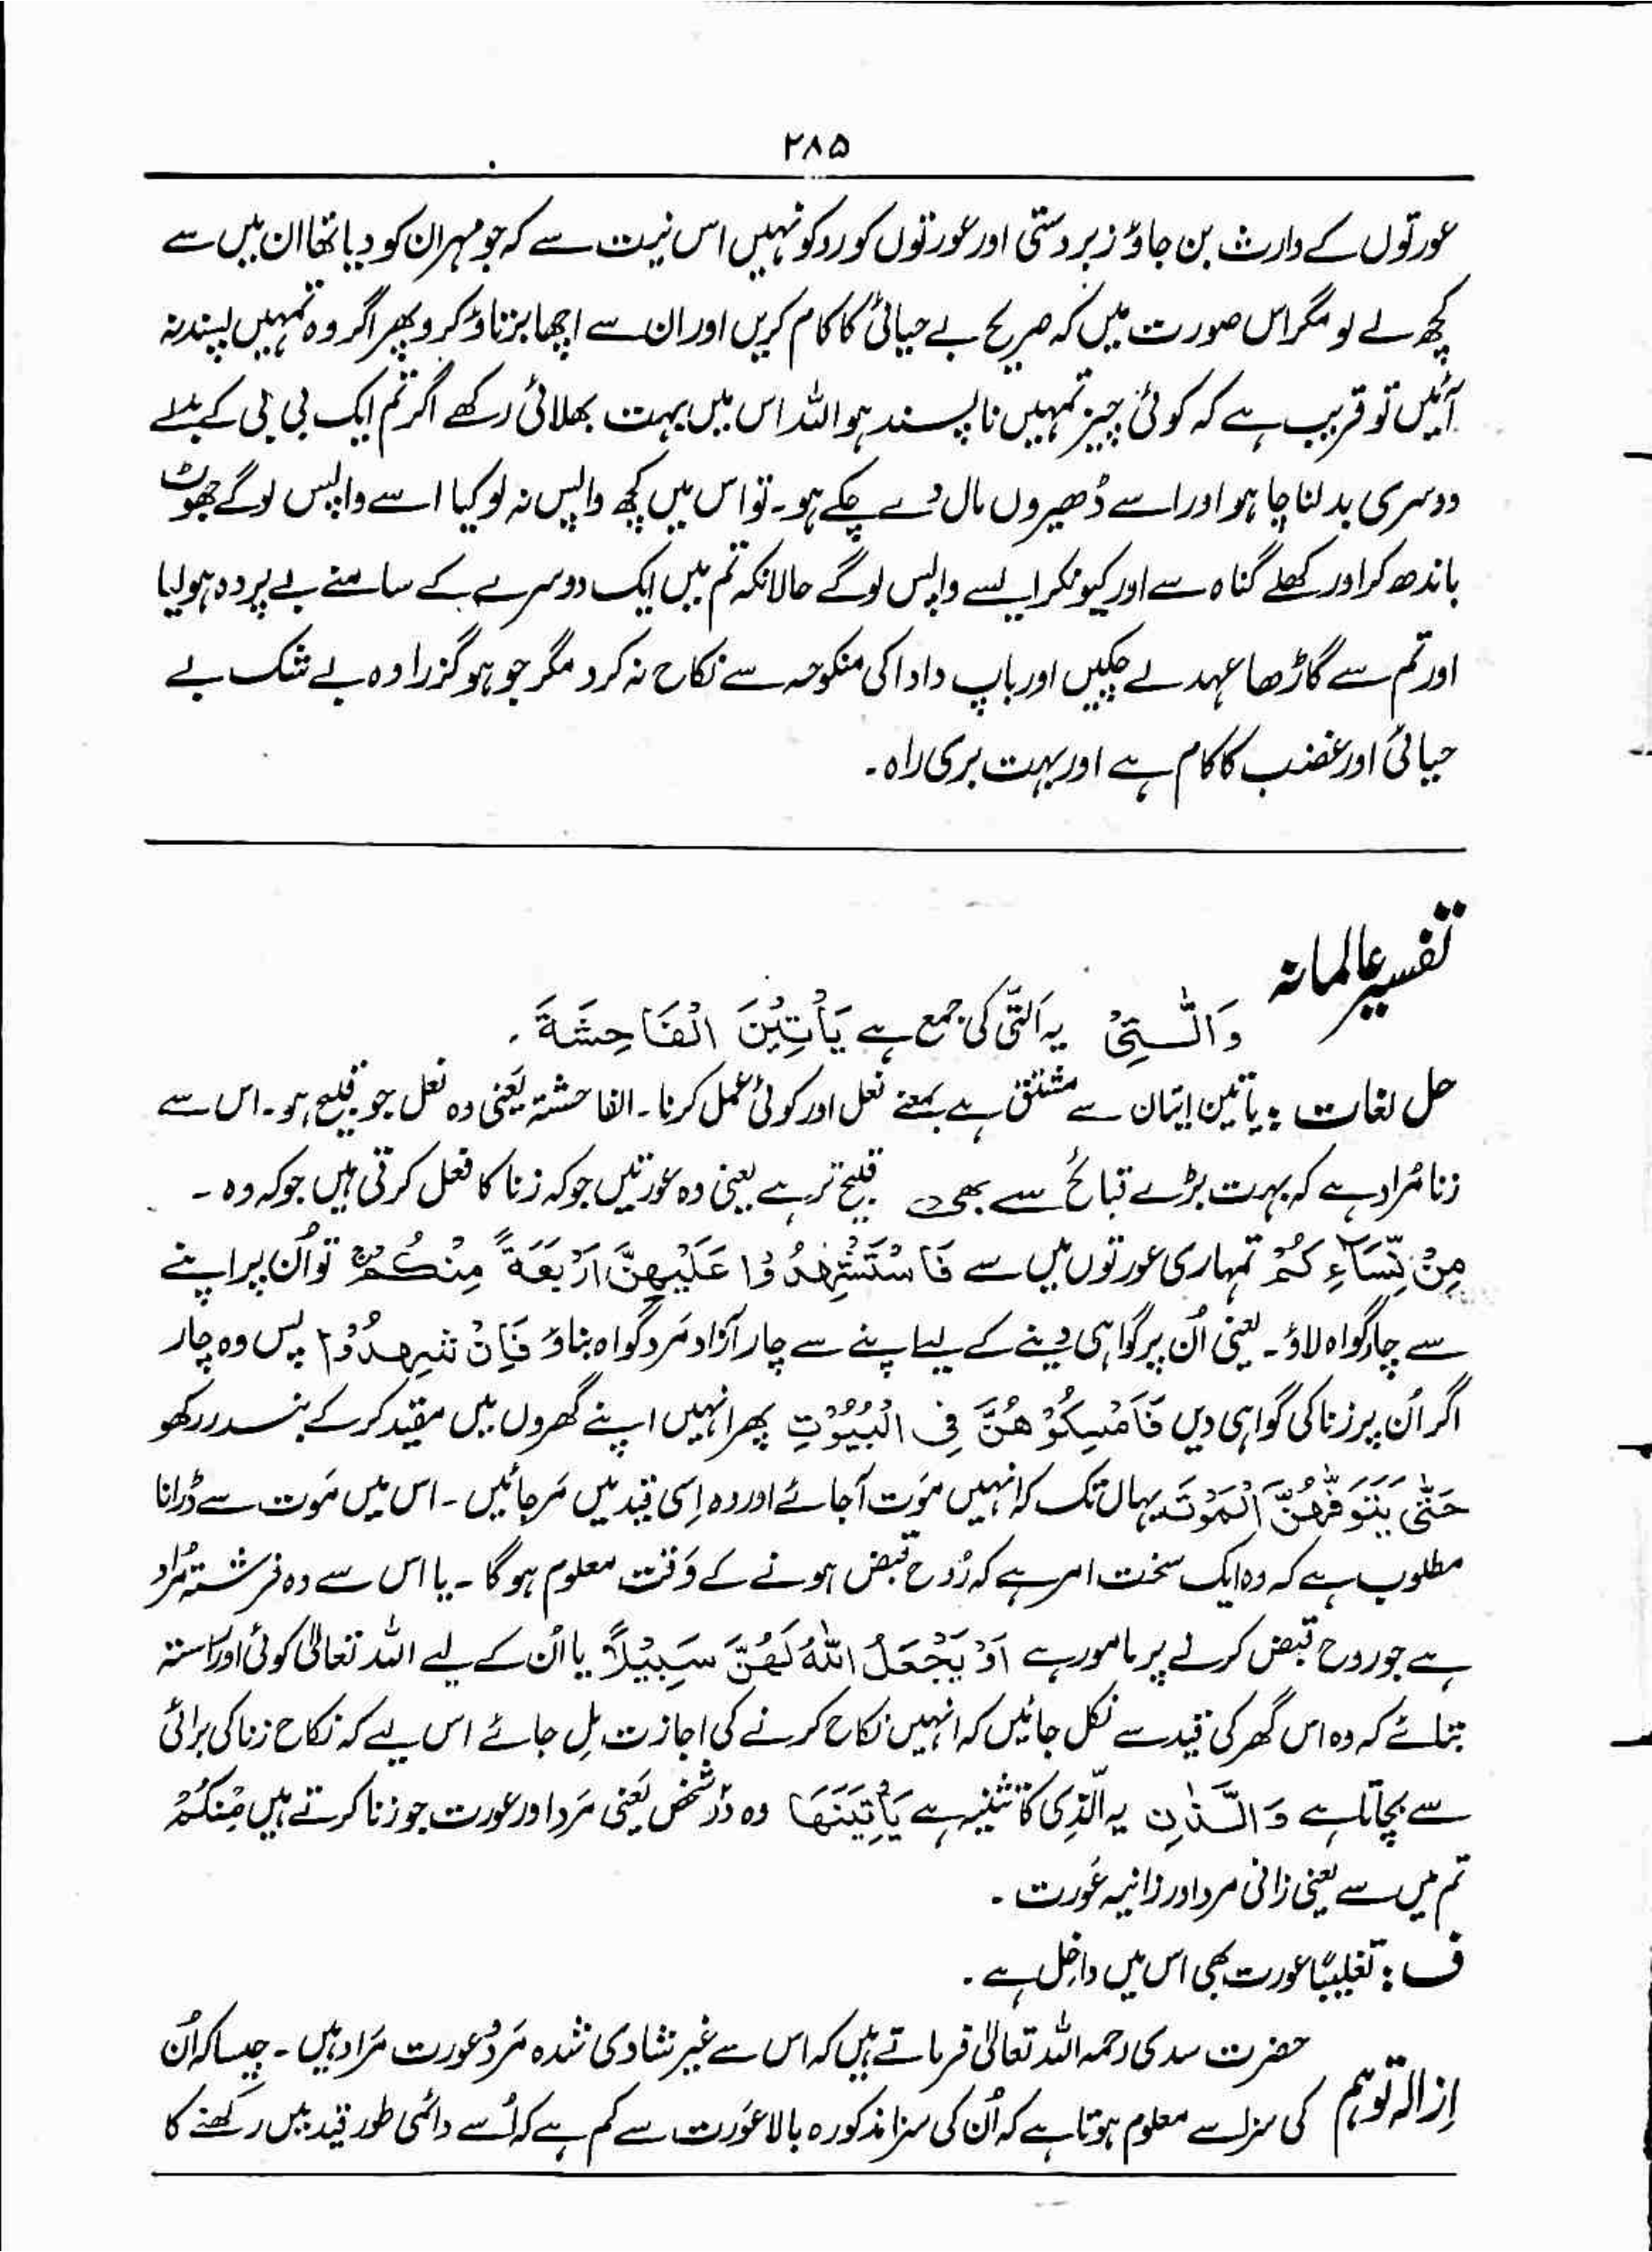 ۲۸۵
عورتوں کے وارث بن جاؤ زبردستی اور عورتوں کو روکو نہیں اس نیت سے کہ جو مہران کو دیا تھا ان میں سے
کچھ لے لو مگر اس صورت میں کہ صریح بے حیائی کا کام کریں اور ان سے اچھا برتاؤ کرو پھر اگر وہ تمہیں پسند نہ
آئیں تو قریب ہے کہ کوئی چیز تمہیں ناپسند ہو اللہ اس میں بہت بھلائی رکھے اگر تم ایک بی بی کے بدلے
دوسری بدلنا چاہو اور اسے ڈھیروں مال دے چکے ہو۔ تو اس میں کچھ واپس نہ لو کیا اسے واپس لوگے جھوٹ
باندھ کر اور کھلے گناہ سے اور کیونکر ایسے واپس لوگے حالانکہ تم میں ایک دوسرے کے سامنے بے پردہ ہولیا
اور تم سے گاڑھا عہد لے چکیں اور باپ دادا کی منکوحہ سے نکاح نہ کرو مگر جو ہو گزرا وہ بے شک بے
حیائی اور غضب کا کام ہے اور بہت بری راہ۔
تفسیر عالمانہ
وَالّٰتِیْ یہ اَلَّتِی کی جمع ہے یَأْتِیْنَ الْفَاحِشَةَ۔
حل لغات : یأتین اتیان سے مشتق ہے بمعنے فعل اور کوئی عمل کرنا۔ الفاحشۃ یعنی وہ فعل جو قبیح ہو۔ اس سے
زنا مُراد ہے کہ بہت بڑے قبائح سے بھی قبیح تر ہے یعنی وہ عورتیں جو کہ زنا کا فعل کرتی ہیں جو کہ وہ ۔
مِنْ نِّسَآءِكُمْ تمہاری عورتوں میں سے فَاسْتَشْهِدُوْا عَلَيْهِنَّ اَرْبَعَةً مِنْكُمْ تو اُن پر اپنے
سے چار گواہ لاؤ۔ یعنی اُن پر گواہی دینے کے لیے اپنے سے چار آزاد مَرد گواہ بناؤ فَاِنْ شَهِدُوْا پس وہ چار
اگر اُن پر زنا کی گواہی دیں فَاَمْسِكُوْهُنَّ فِی الْبُيُوْتِ پھر انہیں اپنے گھروں میں مقید کر کے بند رکھو
حَتّٰى يَتَوَفّٰهُنَّ الْمَوْتُ یہاں تک کہ انہیں مَوت آجائے اور وہ اِسی قید میں مَر جائیں۔ اس میں مَوت سے ڈرانا
مطلوب ہے کہ وہ ایک سخت امر ہے کہ رُوح قبض ہونے کے وَقت معلوم ہوگا۔ یا اس سے وہ فرشتہ مُراد
ہے جو روح قبض کرنے پر مامور ہے اَوْ يَجْعَلَ اللّٰهُ لَهُنَّ سَبِيْلًا یا اُن کے لیے اللہ تعالیٰ کوئی اور راستہ
بتائے کہ وہ اس گھر کی قید سے نکل جائیں کہ انہیں نکاح کرنے کی اجازت مِل جائے اس لیے کہ نکاح زنا کی برائی
سے بچاتا ہے وَالَّذٰنِ یہ الَّذِی کا تثنیہ ہے يَأْتِيٰنِهَا وہ دو شخص یَعنی مَرد اور عورت جو زنا کرتے ہیں مِنْكُمْ
تم میں سے یعنی زانی مرد اور زانیہ عَورت ۔
ف : تغلیبًا عورت بھی اس میں داخِل ہے ۔
حضرت سدی رحمہ اللہ تعالیٰ فرماتے ہیں کہ اس سے غیر شادی شدہ مَرد و عورت مَراد ہیں۔ جیسا کہ اُن
اِزالہ توہم کی سزا سے معلوم ہوتا ہے کہ اُن کی سزا مذکورہ بالا عَورت سے کم ہے کہ اُسے دائمی طور قید میں رکھنے کا